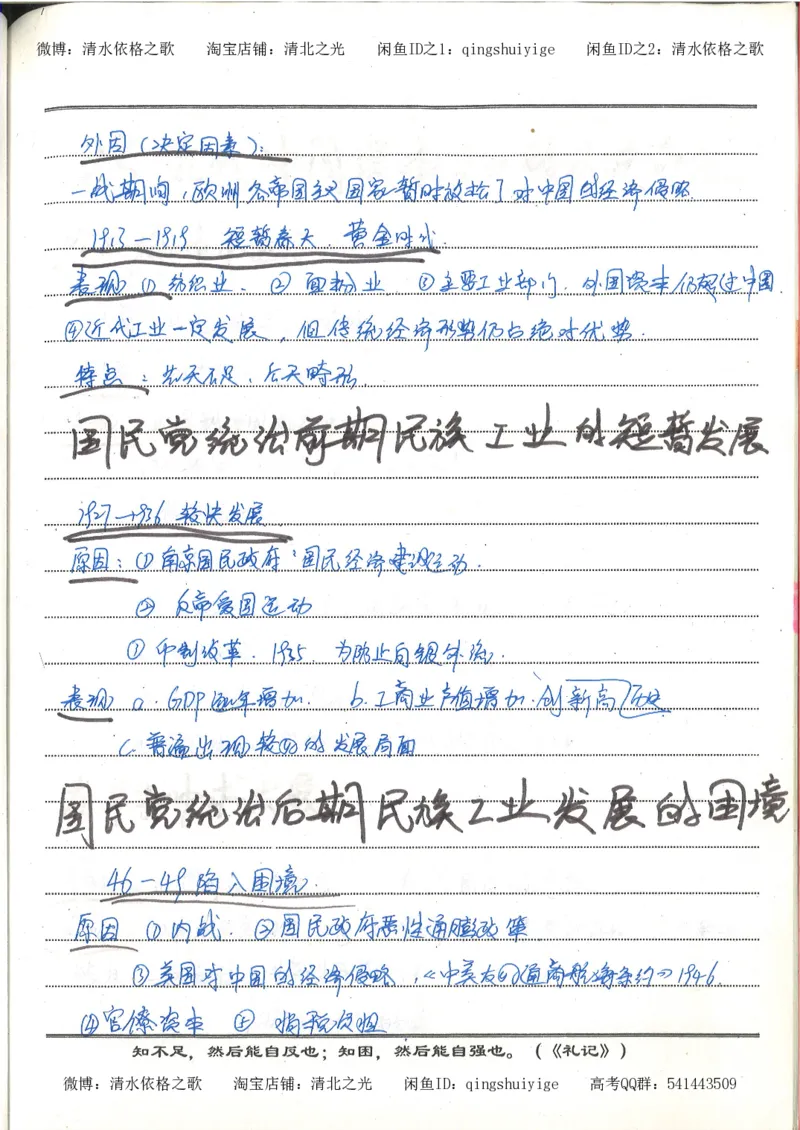 微博：清水依格之歌 淘宝店铺：清北之光 闲鱼ID之1：qingshuiyige 闲鱼ID之2：清水依格之歌
外因（决定因素）：
一战期间，欧洲各帝国主义国家暂时放松了对中国的经济侵略
1913—1919 短暂春天、黄金时代
表现 ① 纺织业、② 面粉业 ③主要工业部门，外国资本仍超过中国
④近代工业一定发展，但传统经济形势仍占绝对优势.
特点：先天不足、后天畸形.
国民党统治前期民族工业的短暂发展
1927→1936 较快发展
原因：① 南京国民政府：国民经济建设运动.
② 反帝爱国运动
① 币制改革. 1935. 为防止白银外流.
表现 a. GDP逐年增加. b.工商业产值增加.创新高历史
c.普遍出现较的发展局面
国民党统治后期民族工业发展的困境
46—49 陷入困境.
原因 ①内战. ②国民政府恶性通膨政策
③美国对中国的经济侵略，《中美友通商航海条约》1946.
④官僚资本 ⑤
知不足，然后能自反也；知困，然后能自强也。（《礼记》）
微博：清水依格之歌 淘宝店铺：清北之光 闲鱼ID：qingshuiyige 高考QQ群：541443509